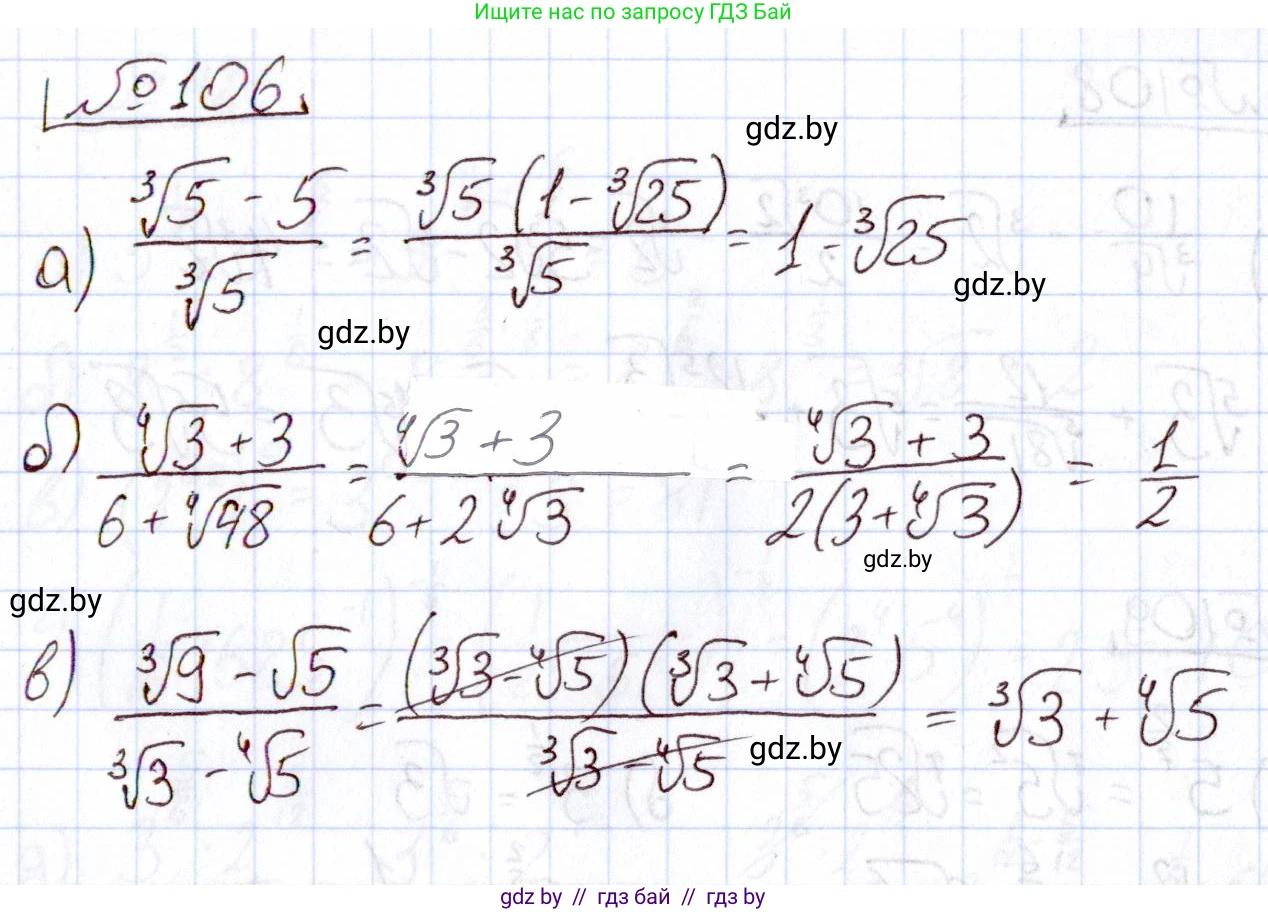 Ищите нас по запросу ГДЗ Бай
№106.
gdz.by
а) (∛5 - 5)/∛5 = ∛5 (1 - ∛25)/∛5 = 1 - ∛25
gdz.by
gdz.by
б) (∜3 + 3)/(6 + ∜48) = (∜3 + 3)/(6 + 2∜3) = (∜3 + 3)/(2(3 + ∜3)) = 1/2
gdz.by
gdz.by
в) (∛9 - √5)/(∛3 - ∜5) = (∛3 - ∜5)(∛3 + ∜5)/(∛3 - ∜5) = ∛3 + ∜5
gdz.by
gdz by // гдз бай // гдз by